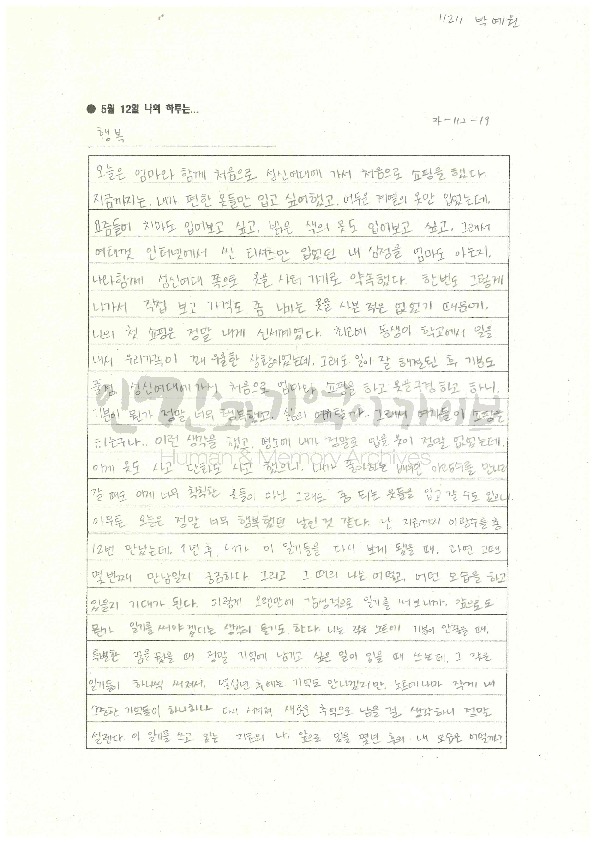 11211 박예원
● 5월 12일 나의 하루는...
자-112-19
행복
오늘은 엄마랑 함께 처음으로 성신여대에 가서 처음으로 쇼핑을 했다
지금까지는 내가 편한 옷들만 입고 싶어했고, 어두운 계열의 옷만 입었는데,
요즘들어 치마도 입어보고 싶고, 밝은 색의 옷도 입어보고 싶고. 그래서
여태껏 인터넷에서 싼 티셔츠만 입었던 내 심정을 엄마도 아는지,
나와함께 성신여대 쪽으로 옷을 사러 가기로 약속했다. 한번도 그렇게
나가서 직접 보고 가격도 좀 나가는 옷을 사본 적은 없었기 때문에,
나의 첫 쇼핑은 정말 내게 신세계였다. 최근에 동생이 학교에서 일을
내서 우리가족이 꽤 우울한 상황이었는데, 그래도 일이 잘 해결된 후 기분도
성신여대에 가서 처음으로 엄마와 쇼핑을 하고 옷을 구경하고 하니,
기분이 뭔가 정말 너무 행복했고, 그래서 여자들이 쇼핑을
이런 생각을 했고, 평소에 내가 정말로 입을 옷이 정말 없었는데,
이제 옷도 사고 단화도 사고 했으니, 내가 좋아하는 배우인 이광수를 만나러
갈 때도 이제 너무 칙칙한 옷들이 아닌 그래도 좀 튀는 옷들을 입고 갈 수도 있으니
아무튼 오늘은 정말 너무 행복했던 날인 것 같다. 난 지금까지 이광수를 총
12번 만났는데, 1년 후, 내가 이 일기들을 다시 보게 됐을 때, 과연 그때의
몇번째 만남일지 궁금하다 그리고 그 때의 나는 어떻고, 어떤 모습을 하고
있을지 기대가 된다. 이렇게 오랜만에 감성적으로 일기를 써보니까, 앞으로도
뭔가 일기를 써야 겠다는 생각이 들기도 한다. 나는 작은 노트에 기분이 안좋을 때,
특별한 꿈을 꿨을 때 정말 기억에 남기고 싶은 일이 있을 때 쓰는데, 그 작은
일기들이 하나씩 써져서, 몇십년 후에는 기억도 안나겠지만, 노트에나마 작게 내
소중한 기억들이 하나하나 다시 새겨져 새로운 추억으로 남을 걸 생각하니 정말
설렌다. 이 일기를 쓰고 있는 지금의 나, 앞으로 있을 몇년 후의 내 모습은 어떨까?
인간과기억아카이브
Human & Memory Archives